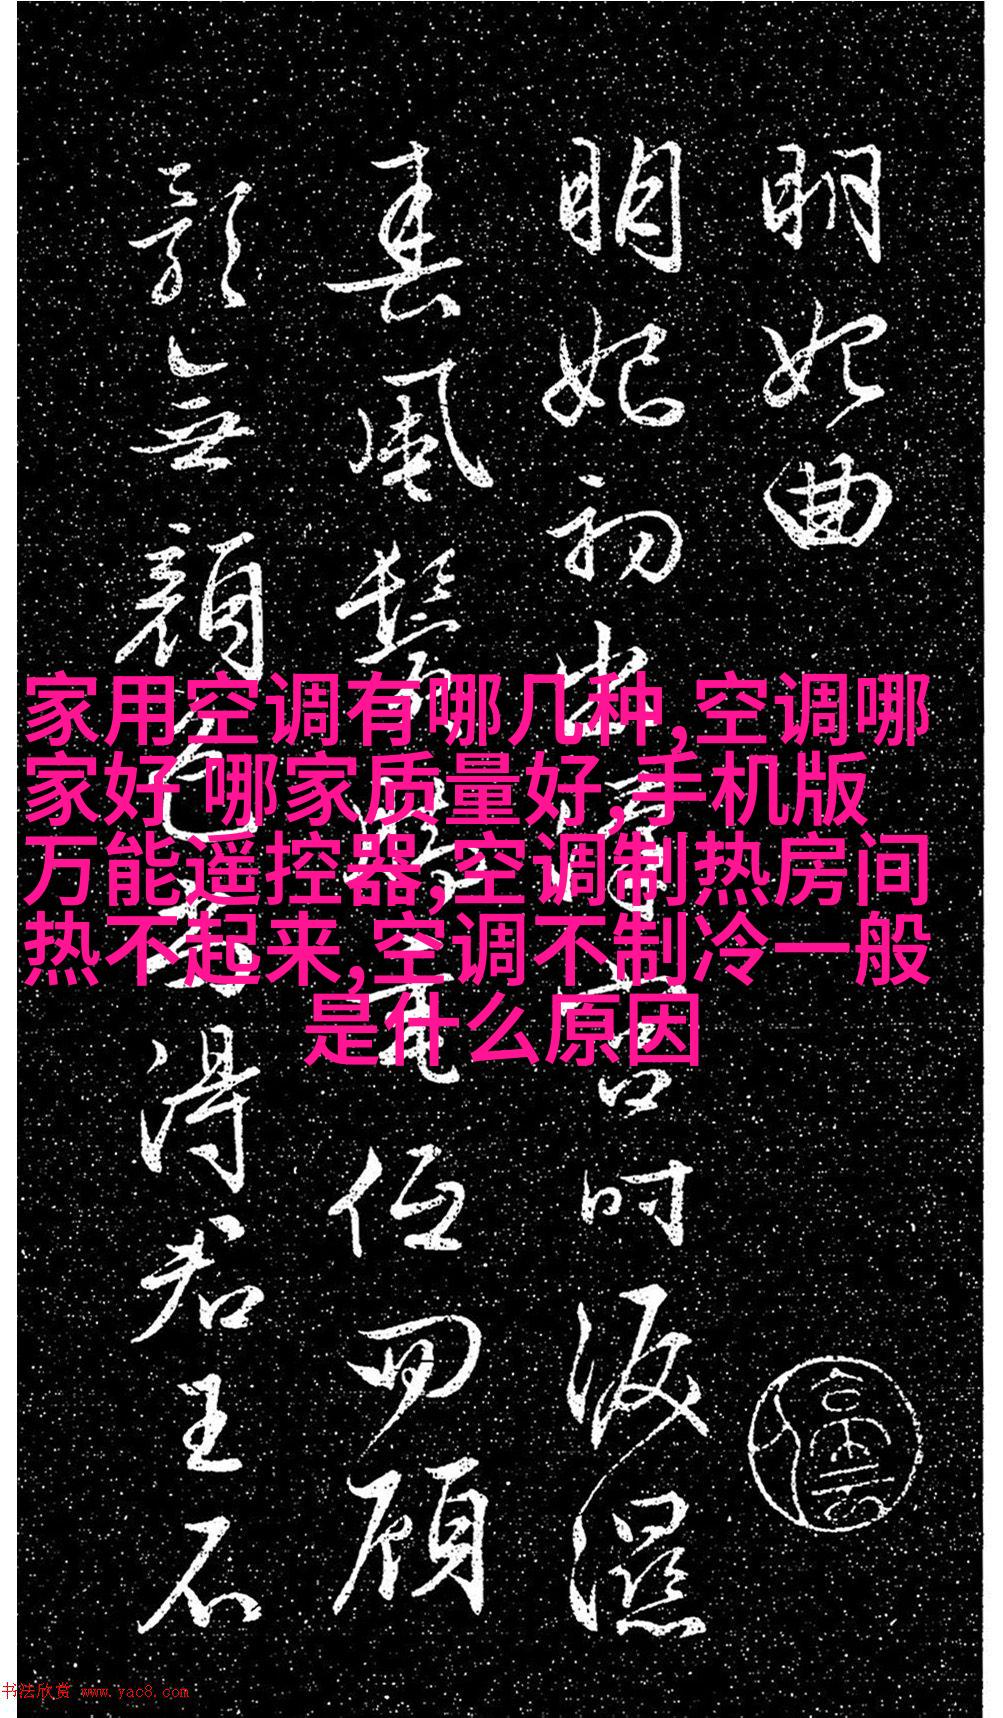 明妃曲
明妃初出漢宮時淚濕
春風鬢腳垂低回顧
影無顏色尚得君王不
家用空调有哪几种,空调哪
家好 哪家质量好,手机版
万能遥控器,空调制热房间
热不起来,空调不制冷一般
是什么原因
书法欣赏 www.yac8.com